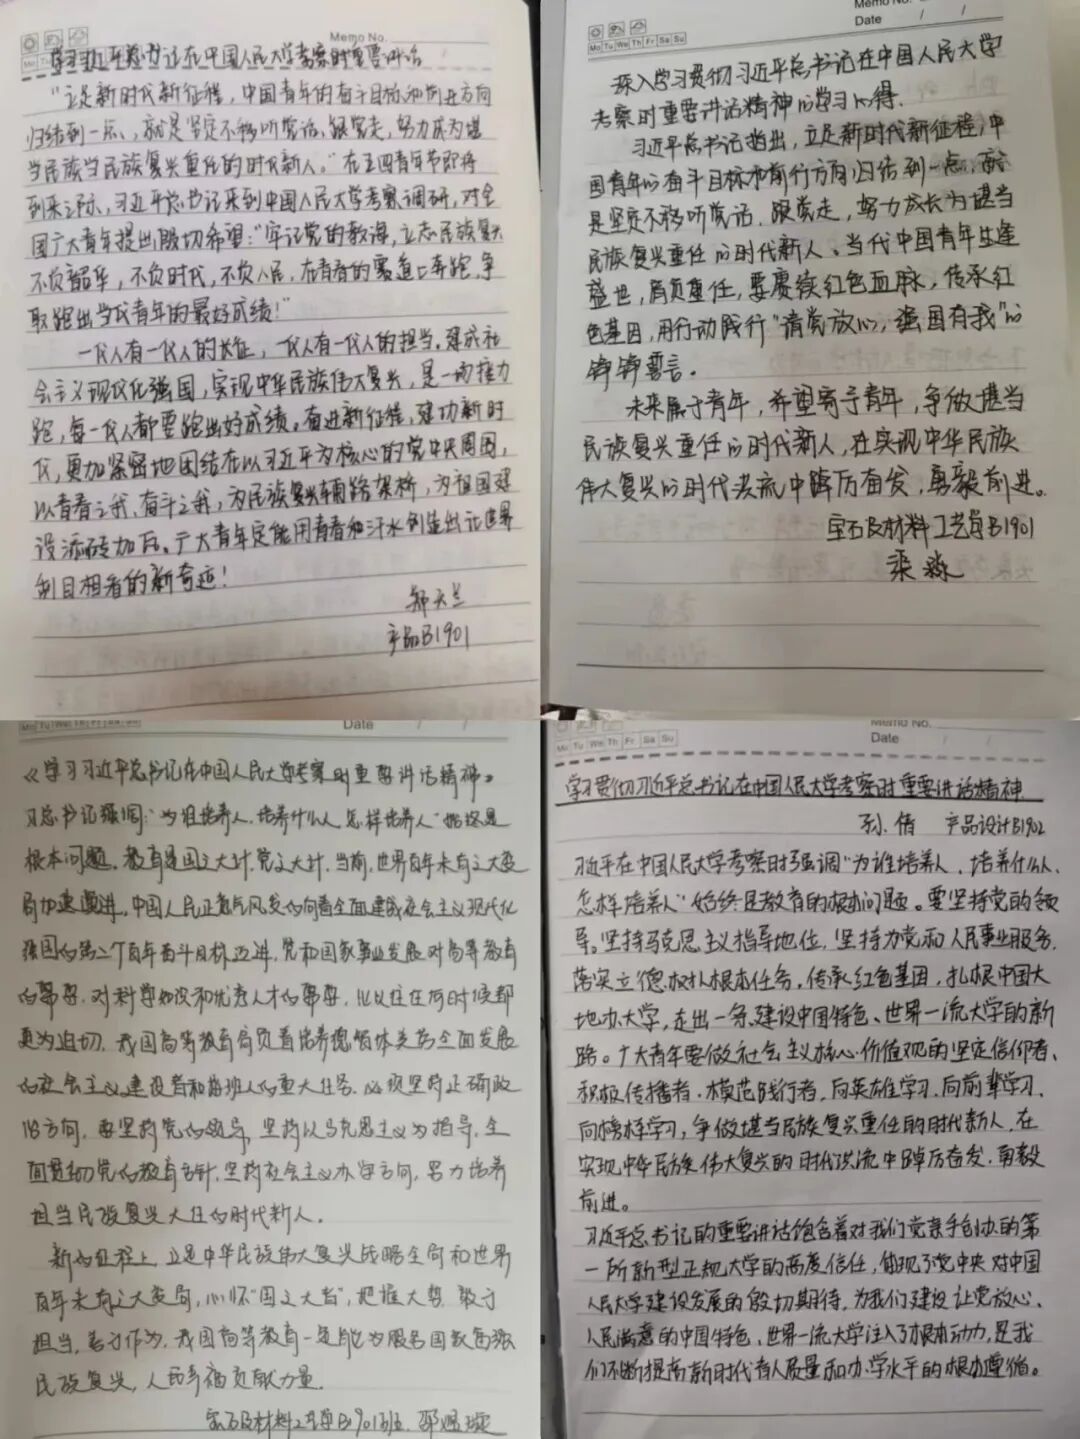 Memo No.
学习习近平总书记在中国人民大学考察时重要讲话
“立足新时代新征程，中国青年的奋斗目标和前进方向
归结到一点，就是坚定不移听党话、跟党走，努力成为堪
当民族当民族复兴重任的时代新人。”在五四青年节即将
到来之际，习近平总书记来到中国人民大学考察调研，对全
国广大青年提出殷切希望：“牢记党的教诲，立志民族复兴
不负韶华，不负时代，不负人民，在青春的赛道上奔跑，争
取跑出当代青年的最好成绩！”
一代人有一代人的长征，一代人有一代人的担当。建成社
会主义现代化强国，实现中华民族伟大复兴，是一场接力
跑，每一代人都要跑出好成绩。奋进新征程，建功新时
代，更加紧密地团结在以习近平为核心的党中央周围，
以青春之我、奋斗之我，为民族复兴铺路架桥，为祖国建
设添砖加瓦。广大青年定能用青春和汗水创造出让世界
刮目相看的新奇迹！
郑天兰
产品B1901
Memo No.
Mo Tu We Th Fr Sa Su
Date / /
深入学习贯彻习近平总书记在中国人民大学
考察时重要讲话精神的学习心得.
习近平总书记指出，立足新时代新征程，中
国青年的奋斗目标和前行方向归结到一点，就
是坚定不移听党话、跟党走，努力成长为堪当
民族复兴重任的时代新人。当代中国青年生逢
盛世，肩负重任，要赓续红色血脉，传承红
色基因，用行动践行“请党放心，强国有我”的
铮铮誓言。
未来属于青年，希望寄予青年，争做堪当
民族复兴重任的时代新人，在实现中华民族
伟大复兴的时代洪流中踔厉奋发，勇毅前进。
宝石及材料工艺学B1901
梁淼
Date
《学习习近平总书记在中国人民大学考察时重要讲话精神》
习总书记强调：“为谁培养人、培养什么人、怎样培养人”始终是
根本问题。教育是国之大计，党之大计，当前，世界百年未有之大变
局加速演进，中国人民正意气风发的向着全面建成社会主义现代化
强国的第二个百年奋斗目标迈进，党和国家事业发展对高等教育
的需要，对科学知识和优秀人才的需要，比以往任何时候都
更为迫切，我国高等教育肩负着培养德智体美劳全面发展
的社会主义建设者和接班人的重大任务，必须坚持正确政
治方向，要坚持党的领导，坚持以马克思主义为指导，全
面贯彻党的教育方针，坚持社会主义办学方向，努力培养
担当民族复兴大任的时代新人.
新的征程上，立足中华民族伟大复兴战略全局和世界
百年未有之大变局，心怀“国之大者”，把握大势，敢于
担当，善于作为，我国高等教育一定能为服务国家富强
民族复兴，人民幸福贡献力量.
宝石及材料工艺学B1901班
Memo No.
Mo Tu We Th Fr Sa Su
Date / /
学习贯彻习近平总书记在中国人民大学考察时重要讲话精神
孙倩 产品设计B1902
习近平在中国人民大学考察时强调“为谁培养人、培养什么人、
怎样培养人”始终是教育的根本问题。要坚持党的领
导。坚持马克思主义指导地位，坚持为党和人民事业服务，
落实立德树人根本任务。传承红色基因，扎根中国大
地办大学，走出一条建设中国特色、世界一流大学的新
路。广大青年要做社会主义核心价值观的坚定信仰者、
积极传播者、模范践行者，向英雄学习、向前辈学习、
向榜样学习，争做堪当民族复兴重任的时代新人，在
实现中华民族伟大复兴的时代洪流中踔厉奋发，勇毅
前进。
习近平总书记的重要讲话饱含着对我们党亲手创办的第
一所新型正规大学的高度信任，体现了党中央对中国
人民大学建设发展的殷切期待，为我们建设让党放心、
人民满意的中国特色、世界一流大学注入了根本动力，是我
们不断提高新时代育人质量和办学水平的根本遵循。